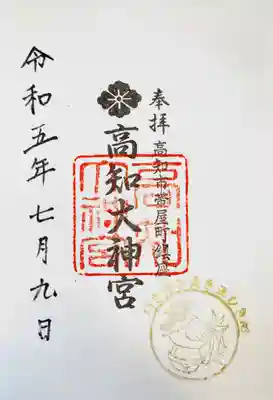 奉拝 高知市帯屋町鎮座
高知大神宮
令和五年七月九日